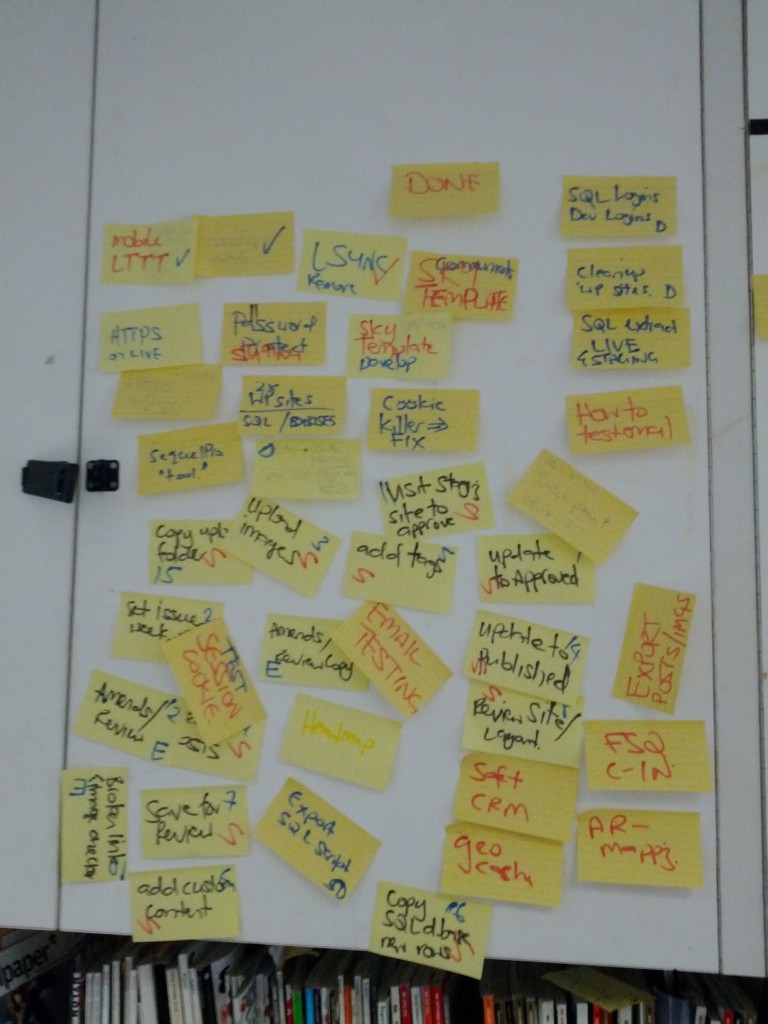 DONE
SQL Logins
Dev Logins D
mobile
LTTT ✓
✓
LSYNC
Remove
Components
SKY
TEMPLATE
Cleanup
WP sites. D
HTTPS
on LIVE
Password
Protect
STAGING
Sky
Template
Develop
SQL extract
LIVE
& STAGING
2x
WP sites
SQL / BDBASES
Cookie
Killer ⇒
Fix
How to
testemail
SequelPro
"tool"
Visit Stag'g
site to
approve S
Copy upl
folder S
15
Upload 3
images S
add tags
S
update
to Approved
S
Set issue 2
week
TEST
SESSION
COOKIE
Amends/
Review Copy
E
EMAIL
TESTING
Update to
Published
S
EXPORT
POSTS/IMGS
Amends/ 2
Review
E
S
Heatmap
Review Site/
Layout.
S
FSQ
C-IN.
Soft
CRM
Broken links
E
Save for 7
Review S
Export
SQL Script
D
geo
cache
AR-
mapp'g.
add custom
Content
S
Copy 6
SQL dbase
new rows S
paper*